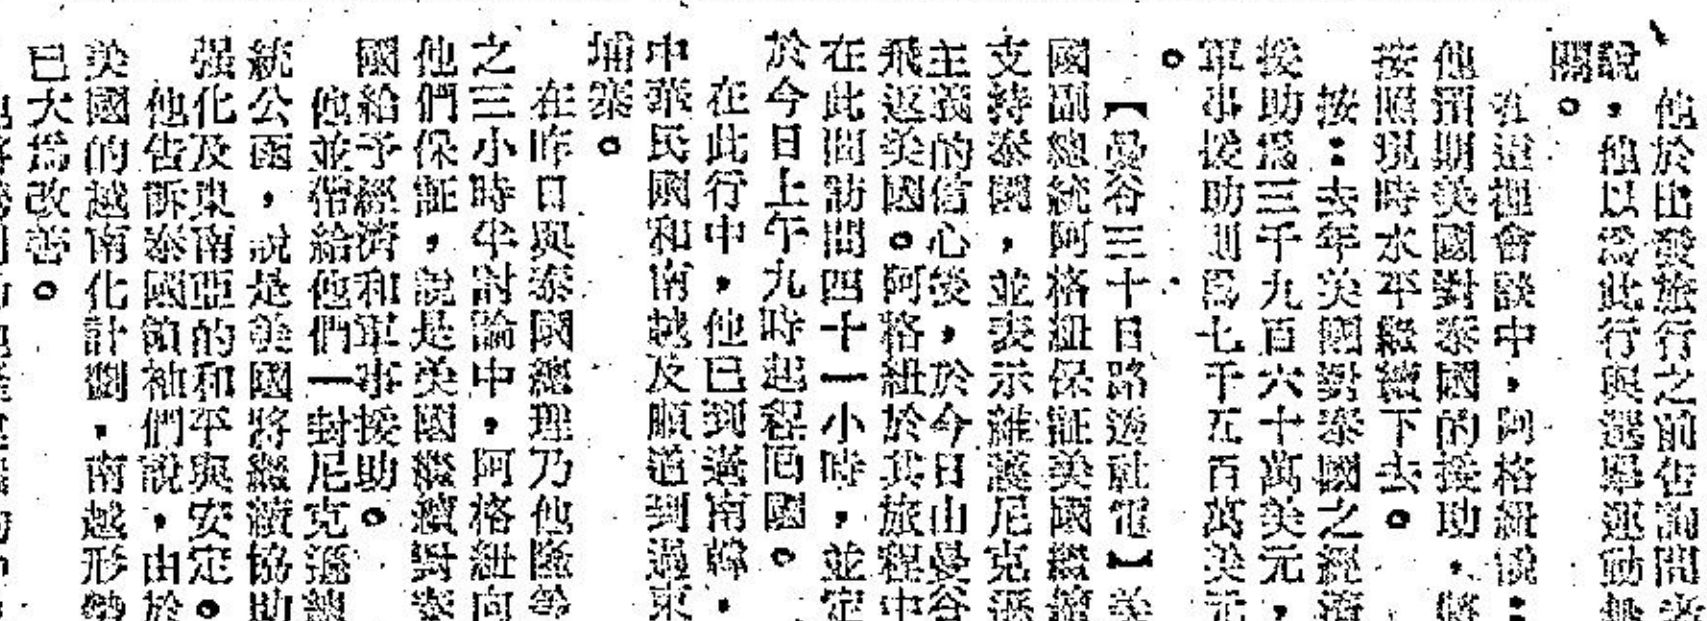 他於出發旅行之前告訴問者
說，他以為此行與選舉運動無
關。
在這裡會談中，阿格紐說：
他預期美國對泰國的援助，將
按照現時水平繼續下去。
按：去年美國對泰國之經濟
援助為三千九百六十萬美元，
軍事援助則為七千五百萬美元
。
【曼谷三十日路透社電】美
國副總統阿格紐保証美國繼續
支持泰國，並表示維護尼克遜
主義的信心後，於今日由曼谷
飛返美國。阿格紐於其旅程中
在此間訪問四十一小時，並定
於今日上午九時起程回國。
在此行中，他已到過南韓，
中華民國和南越及順道到過柬
埔寨。
在昨日與泰國總理乃他隆等
之三小時半討論中，阿格紐向
他們保証，說是美國繼續對泰
國給予經濟和軍事援助。
他並偕給他們一封尼克遜總
統公函，說是美國將繼續協助
强化及東南亞的和平與安定。
他告訴泰國領袖們說，由於
美國的越南化計劃，南越形勢
已大為改善。